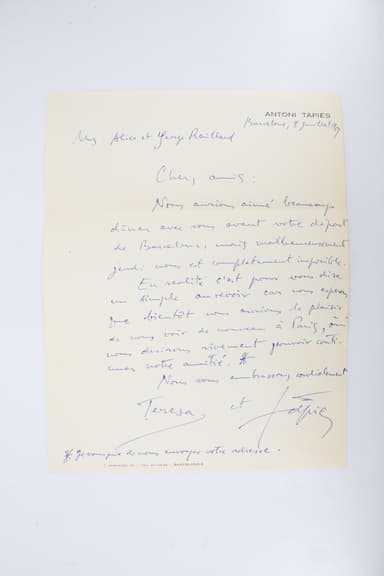 ANTONI TÀPIES
Barcelona, 8 juillet
Alice et George Raillard
Chers amis:
Nous aurions aimé beaucoup
dîner avec vous avant votre départ
de Barcelone, mais malheureusement
jeudi nous est completement imposible.
En realité c'est pour vous dire
un simple aurevoir car nous esperons
que bientôt nous aurions le plaisir
de vous voir de nouveau à Paris, où
nous desirons vivement pouvoir conti-
nuer votre amitié. *
Nous vous embrassons cordialement
Teresa et Tàpies
* de nous envoyer votre adresse.
BARCELONA